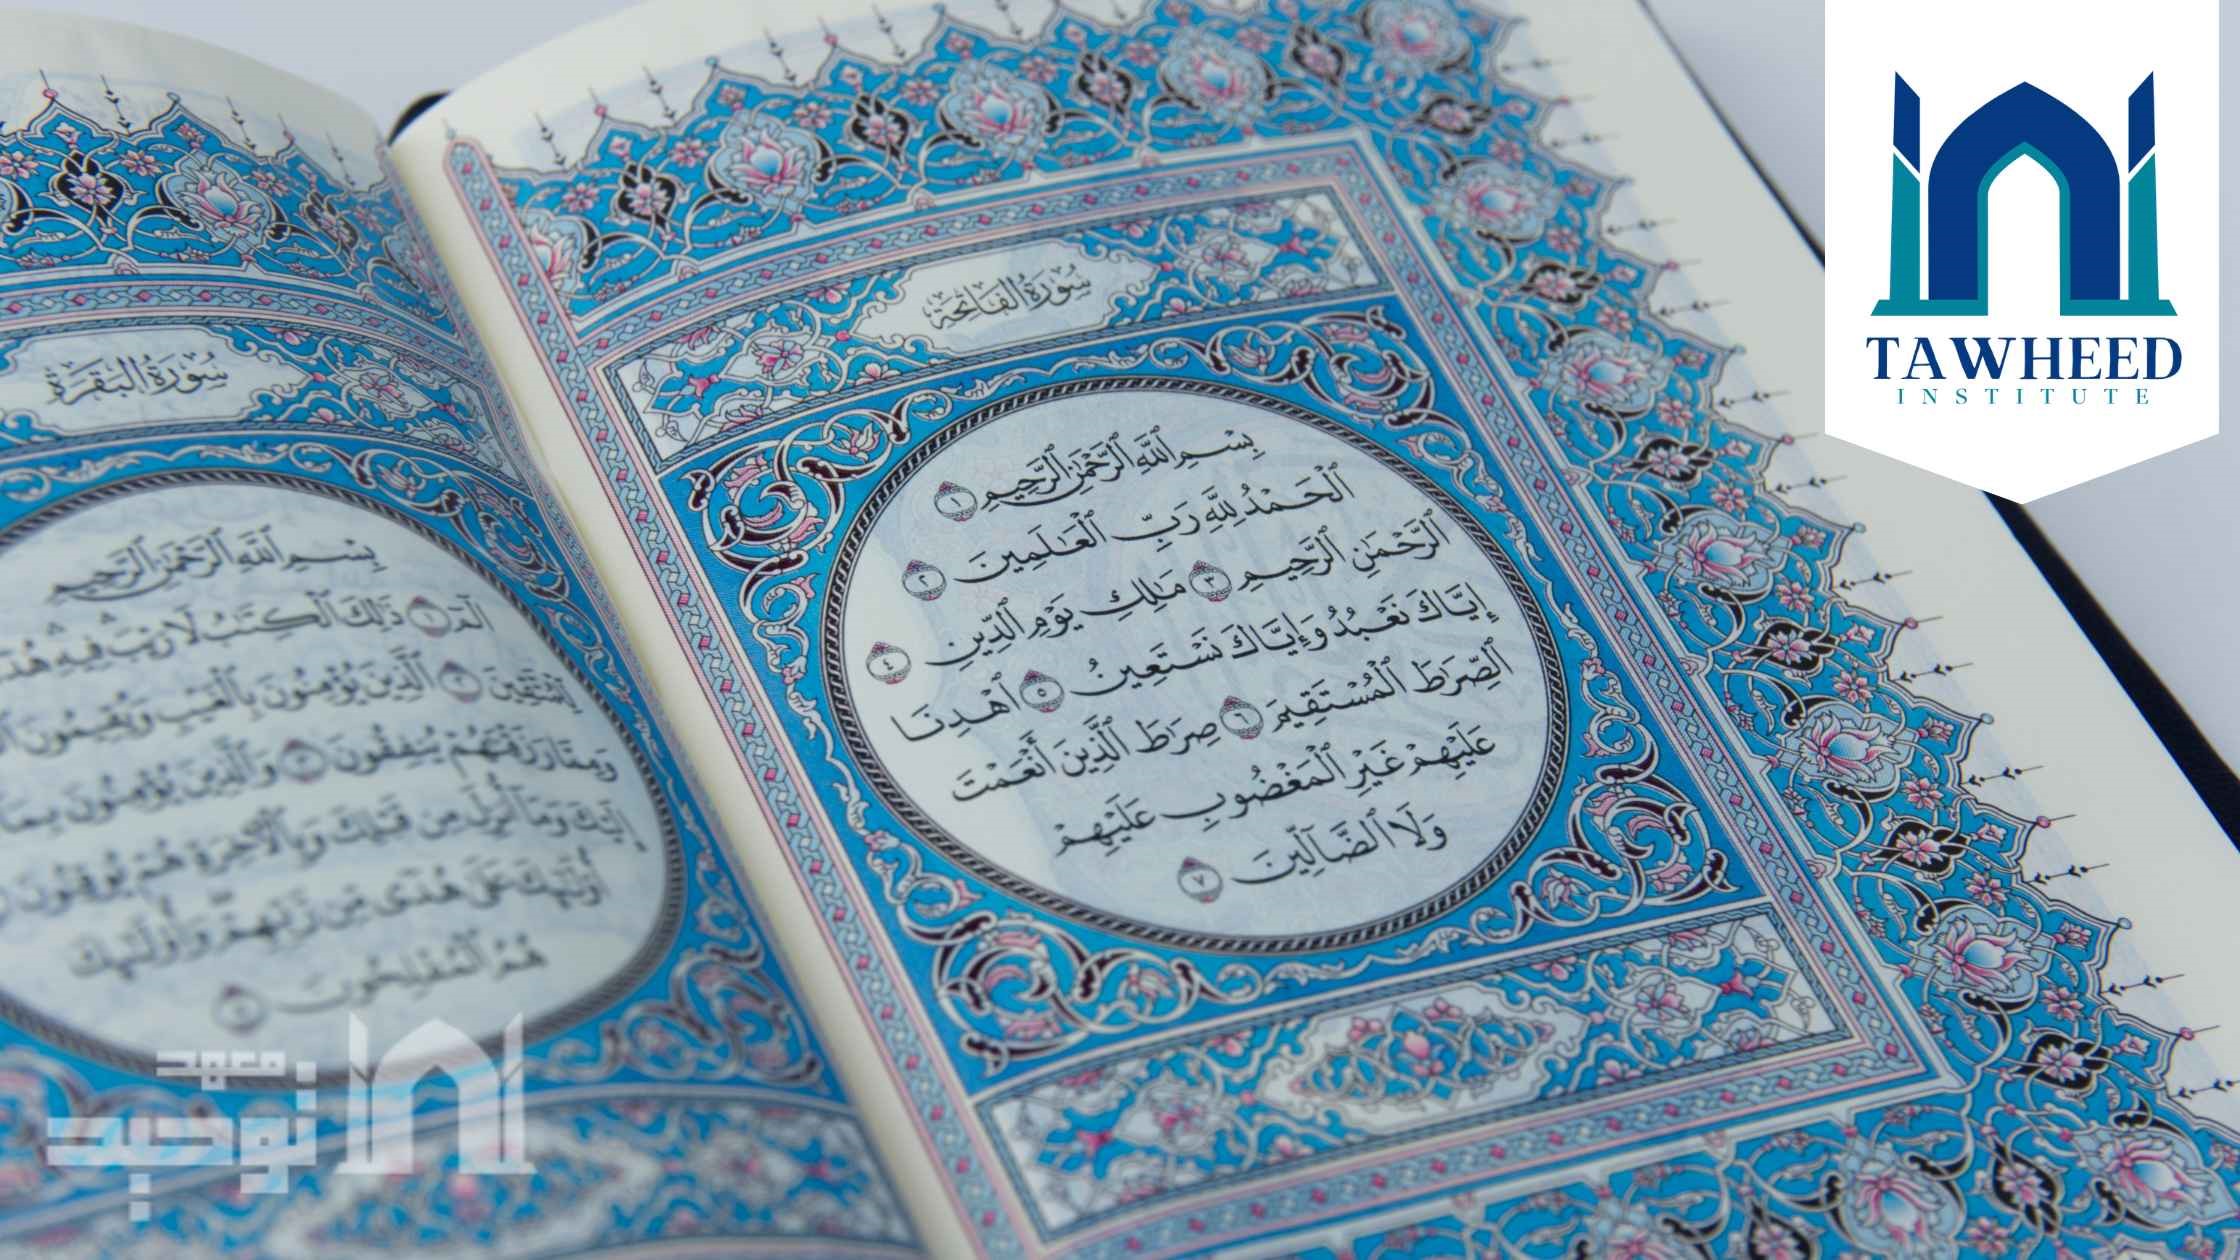 سُورَةُ الفَاتِحَةِ
بِسْمِ ٱللَّهِ ٱلرَّحْمَٰنِ ٱلرَّحِيمِ ١
ٱلْحَمْدُ لِلَّهِ رَبِّ ٱلْعَٰلَمِينَ ٢
ٱلرَّحْمَٰنِ ٱلرَّحِيمِ ٣ مَٰلِكِ يَوْمِ ٱلدِّينِ ٤
إِيَّاكَ نَعْبُدُ وَإِيَّاكَ نَسْتَعِينُ ٥ ٱهْدِنَا
ٱلصِّرَٰطَ ٱلْمُسْتَقِيمَ ٦ صِرَٰطَ ٱلَّذِينَ أَنْعَمْتَ
عَلَيْهِمْ غَيْرِ ٱلْمَغْضُوبِ عَلَيْهِمْ
وَلَا ٱلضَّآلِّينَ ٧
سُورَةُ البَقَرَةِ
بِسْمِ ٱللَّهِ ٱلرَّحْمَٰنِ ٱلرَّحِيمِ
الٓمٓ ١ ذَٰلِكَ ٱلْكِتَٰبُ لَا رَيْبَ فِيهِ
لِّلْمُتَّقِينَ ٢ ٱلَّذِينَ يُؤْمِنُونَ بِٱلْغَيْبِ وَيُقِيمُونَ
وَمِمَّا رَزَقْنَٰهُمْ يُنفِقُونَ ٣ وَٱلَّذِينَ يُؤْمِنُونَ بِمَآ
إِلَيْكَ وَمَآ أُنزِلَ مِن قَبْلِكَ وَبِٱلْءَاخِرَةِ هُمْ يُوقِنُونَ
أُو۟لَٰٓئِكَ عَلَىٰ هُدًى مِّن رَّبِّهِمْ وَأُو۟لَٰٓئِكَ
هُمُ ٱلْمُفْلِحُونَ ٥
TAWHEED
INSTITUTE
معهد
توحيد